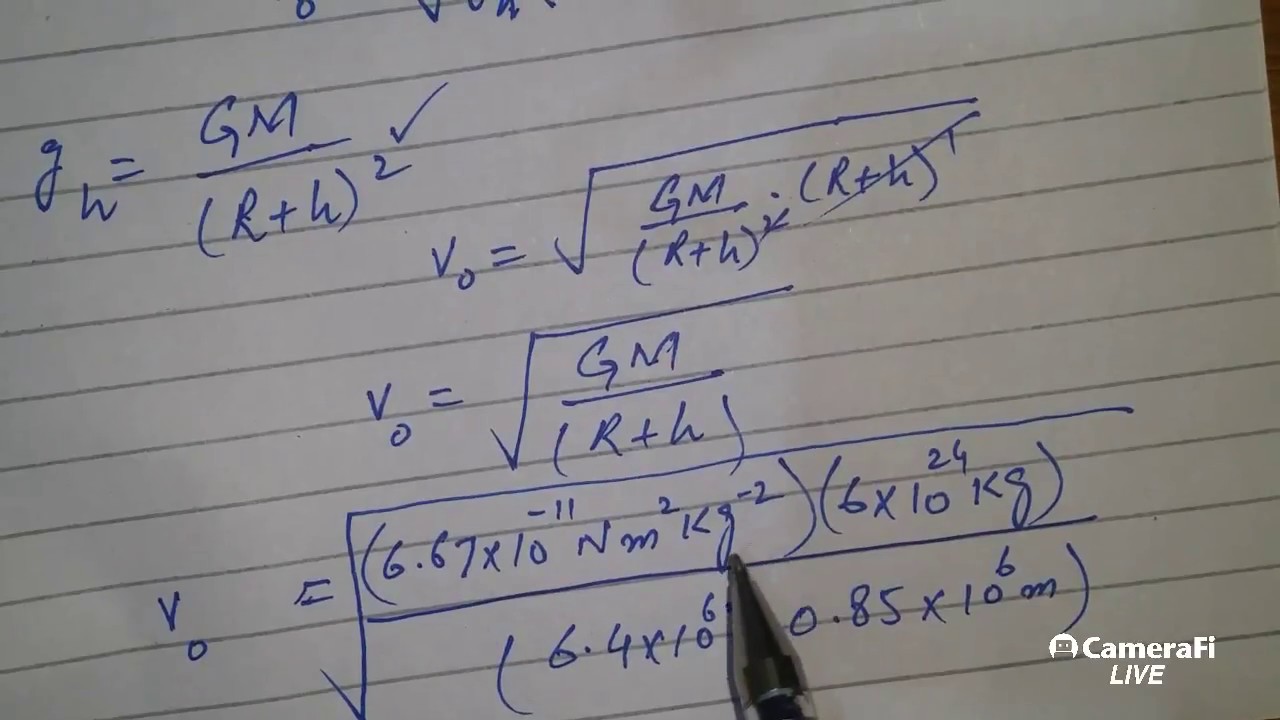 g_h = GM / (R+h)² ✓
v₀ = √(GM / (R+h)² · (R+h)¹)
v₀ = √(GM / (R+h))
v₀ = √((6.67×10⁻¹¹ N m² Kg⁻²)(6×10²⁴ Kg) / (6.4×10⁶ 0.85×10⁶ m))
CameraFi
LIVE